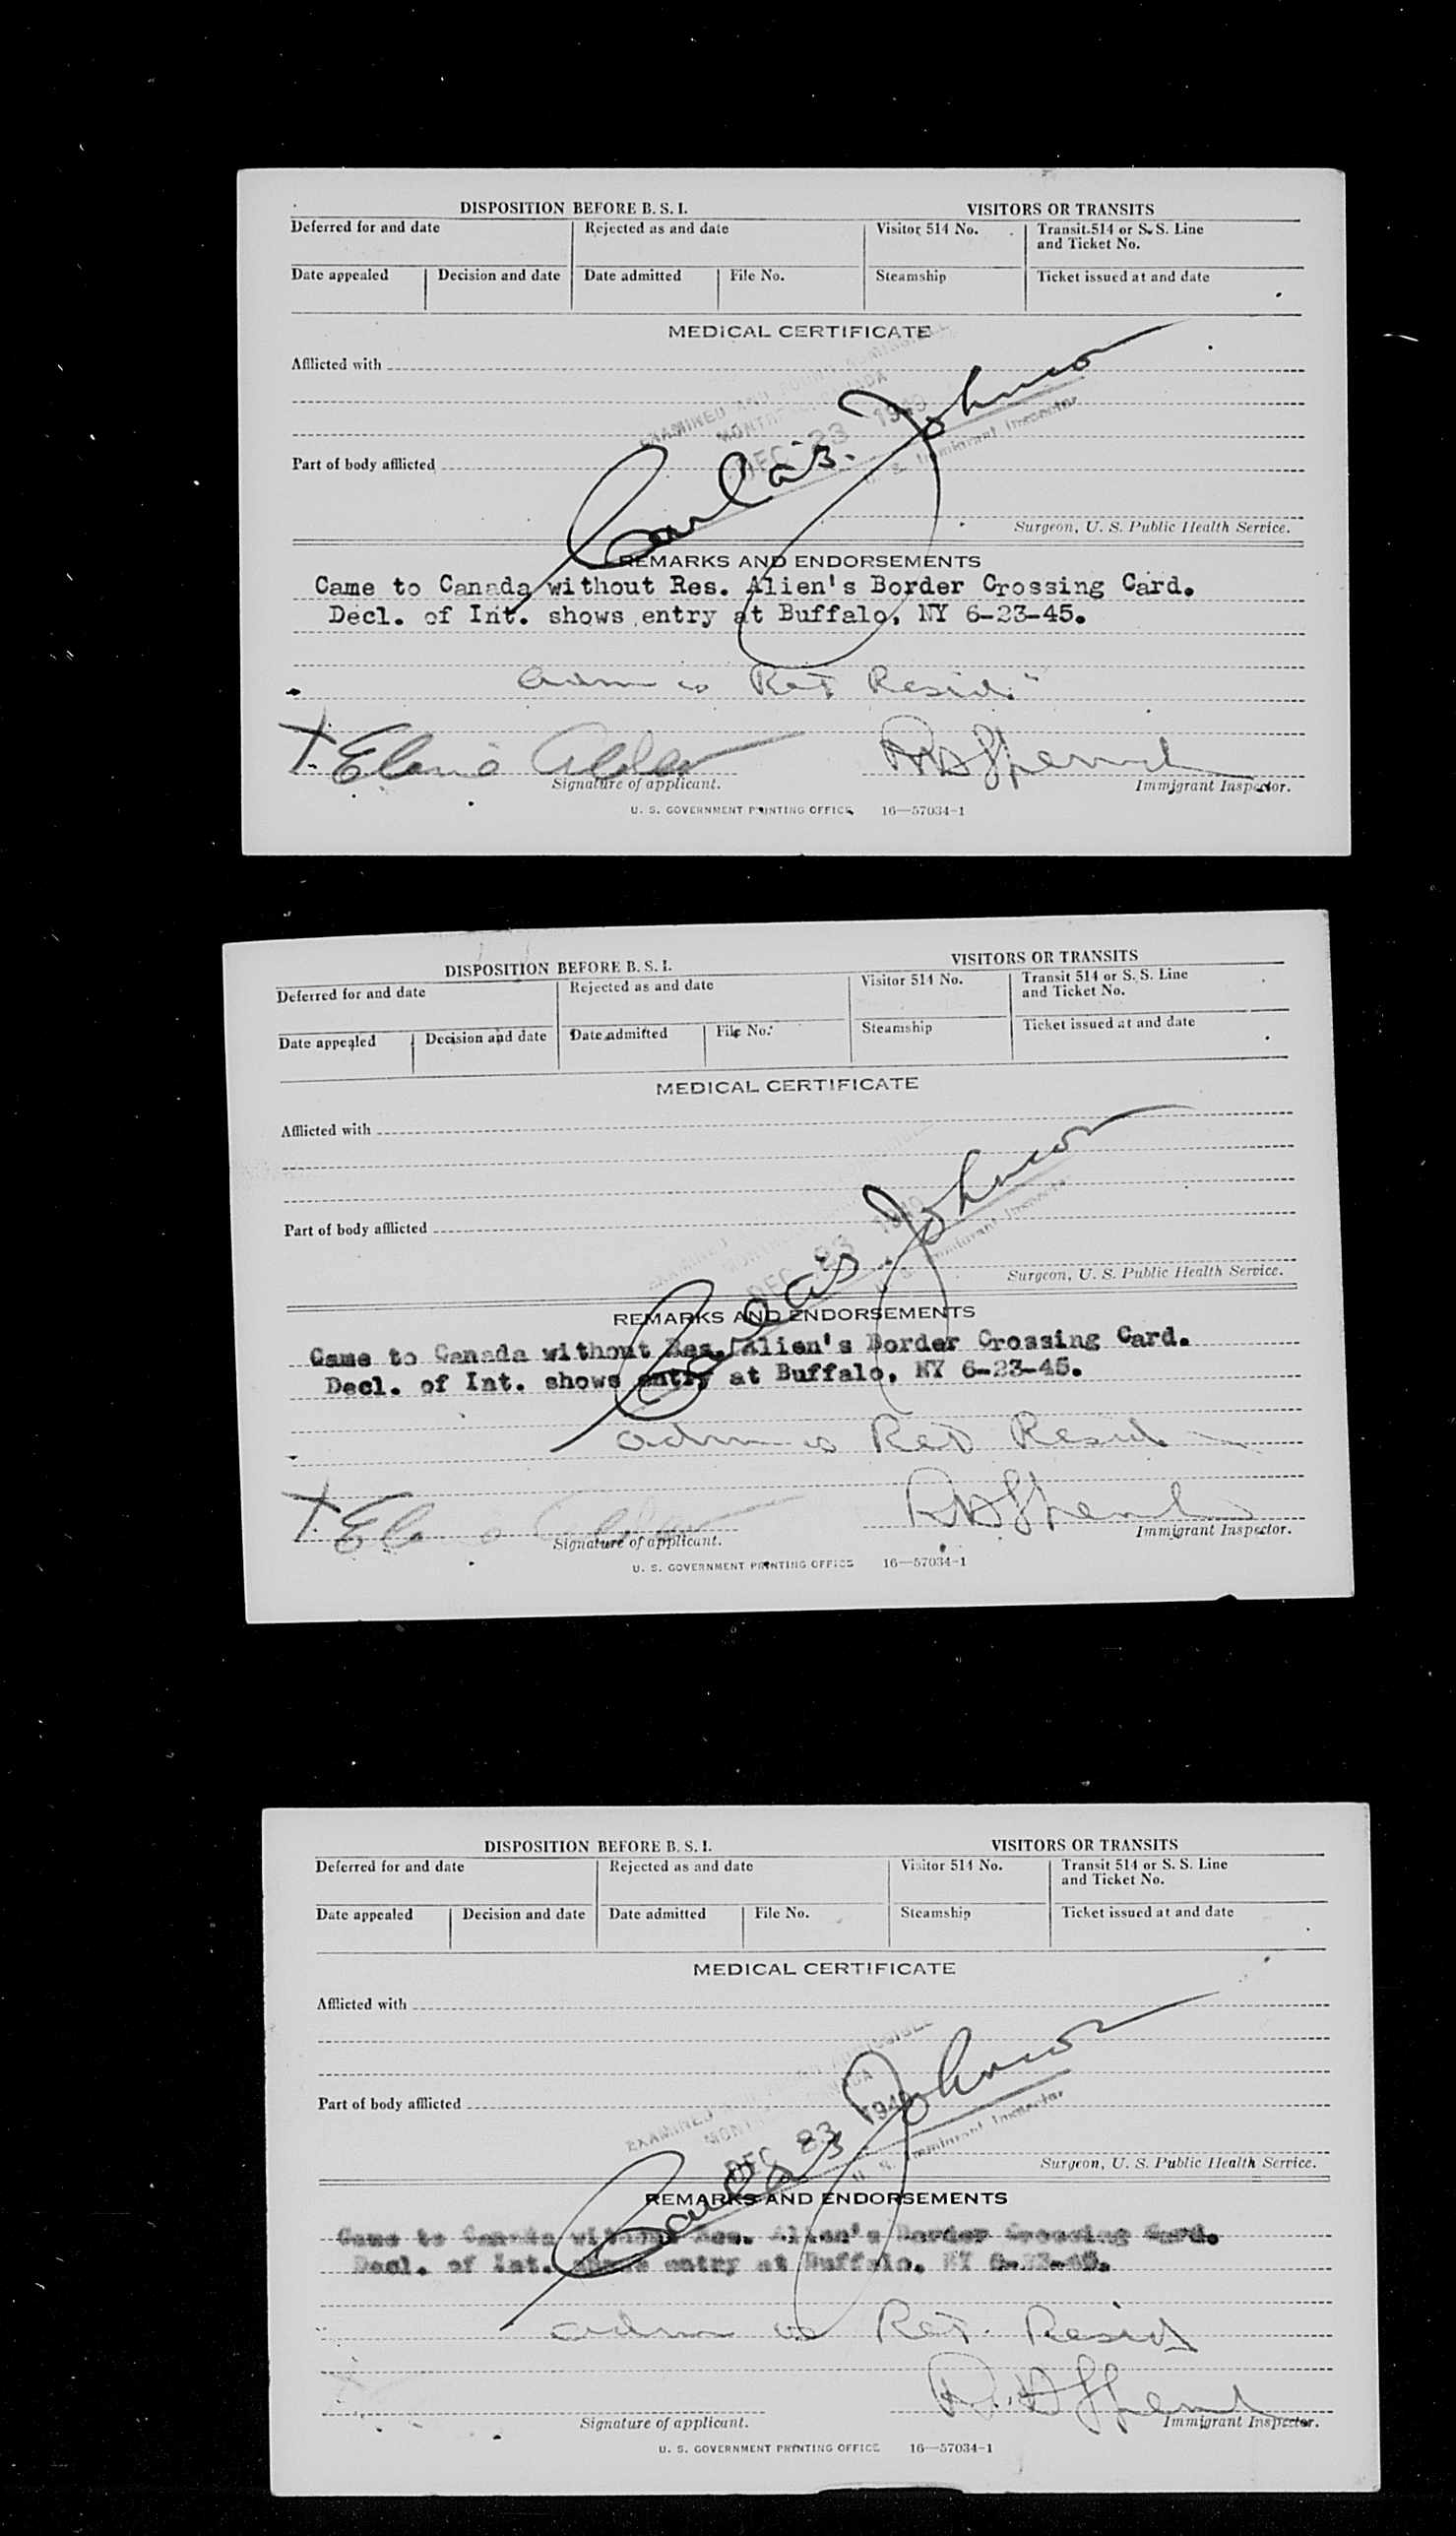 DISPOSITION BEFORE B. S. I. VISITORS OR TRANSITS
Deferred for and date Rejected as and date Visitor 514 No. Transit 514 or S. S. Line
and Ticket No.
Date appealed Decision and date Date admitted File No. Steamship Ticket issued at and date
MEDICAL CERTIFICATE
Afflicted with
EXAMINED AND
MONTREAL, CANADA
DEC 23 1940
U. S. Immigrant Inspector
Johnson
Part of body afflicted
Surgeon, U. S. Public Health Service.
REMARKS AND ENDORSEMENTS
Came to Canada without Res. Alien's Border Crossing Card.
Decl. of Int. shows entry at Buffalo, NY 6-23-45.
adm as Ret Resid.
X
Signature of applicant. Immigrant Inspector.
U. S. GOVERNMENT PRINTING OFFICE 16—57034-1
DISPOSITION BEFORE B. S. I. VISITORS OR TRANSITS
Deferred for and date Rejected as and date Visitor 514 No. Transit 514 or S. S. Line
and Ticket No.
Date appealed Decision and date Date admitted File No. Steamship Ticket issued at and date
MEDICAL CERTIFICATE
Afflicted with
EXAMINED
DEC 23 1940
U. S. Immigrant Inspector
Johnson
Part of body afflicted
Surgeon, U. S. Public Health Service.
REMARKS AND ENDORSEMENTS
Came to Canada without Res. Alien's Border Crossing Card.
Decl. of Int. shows entry at Buffalo, NY 6-23-45.
adm as Ret Resid
X
Signature of applicant. Immigrant Inspector.
U. S. GOVERNMENT PRINTING OFFICE 16—57034-1
DISPOSITION BEFORE B. S. I. VISITORS OR TRANSITS
Deferred for and date Rejected as and date Visitor 514 No. Transit 514 or S. S. Line
and Ticket No.
Date appealed Decision and date Date admitted File No. Steamship Ticket issued at and date
MEDICAL CERTIFICATE
Afflicted with
EXAMINED
DEC 23
U. S. Immigrant Inspector
Johnson
Part of body afflicted
Surgeon, U. S. Public Health Service.
REMARKS AND ENDORSEMENTS
Came to Canada without Res. Alien's Border Crossing Card.
Decl. of Int. shows entry at Buffalo, NY 6-23-45.
adm as Ret. Resid
Signature of applicant. Immigrant Inspector.
U. S. GOVERNMENT PRINTING OFFICE 16—57034-1